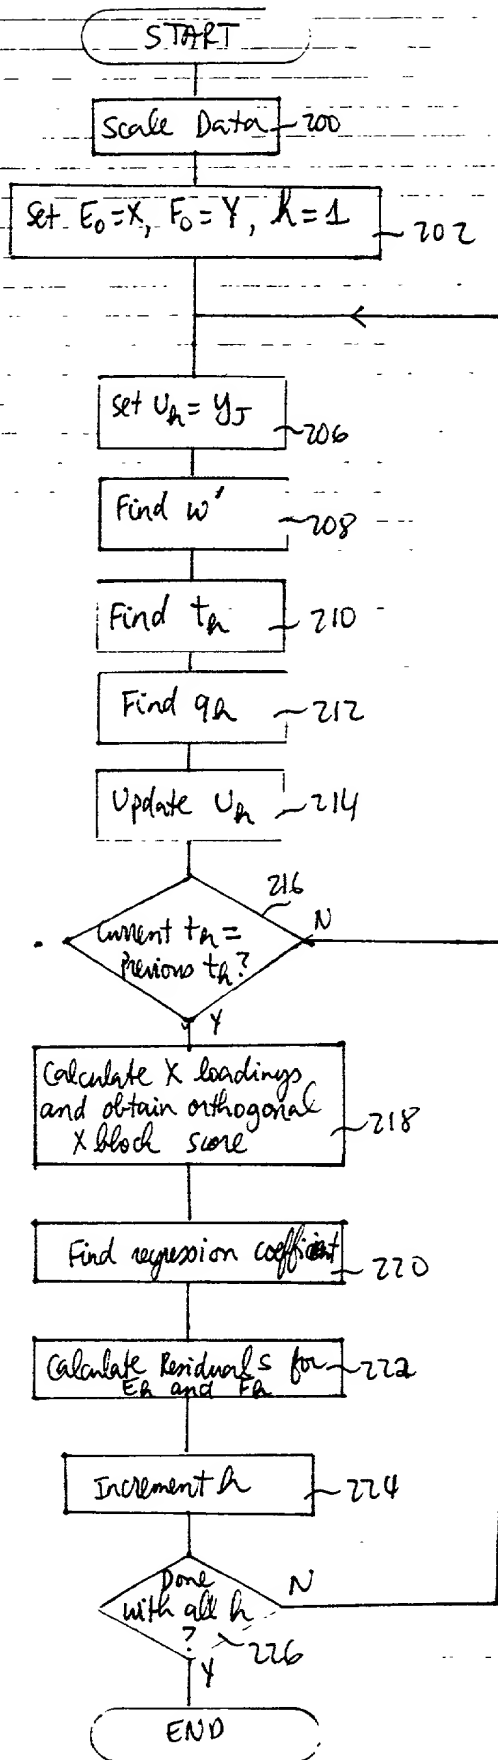 START
Scale Data 200
Set E₀=X, F₀=Y, h=1 202
set uₕ= yⱼ 206
Find w' 208
Find tₕ 210
Find qₕ 212
Update Uₕ 214
216
N
Current tₕ =
Previous tₕ?
Y
Calculate X loadings
and obtain orthogonal
X block score 218
Find regression coefficient 220
Calculate Residuals for 222
Eₕ and Fₕ
Increment h 224
Done
with all h
N
?
226
Y
END